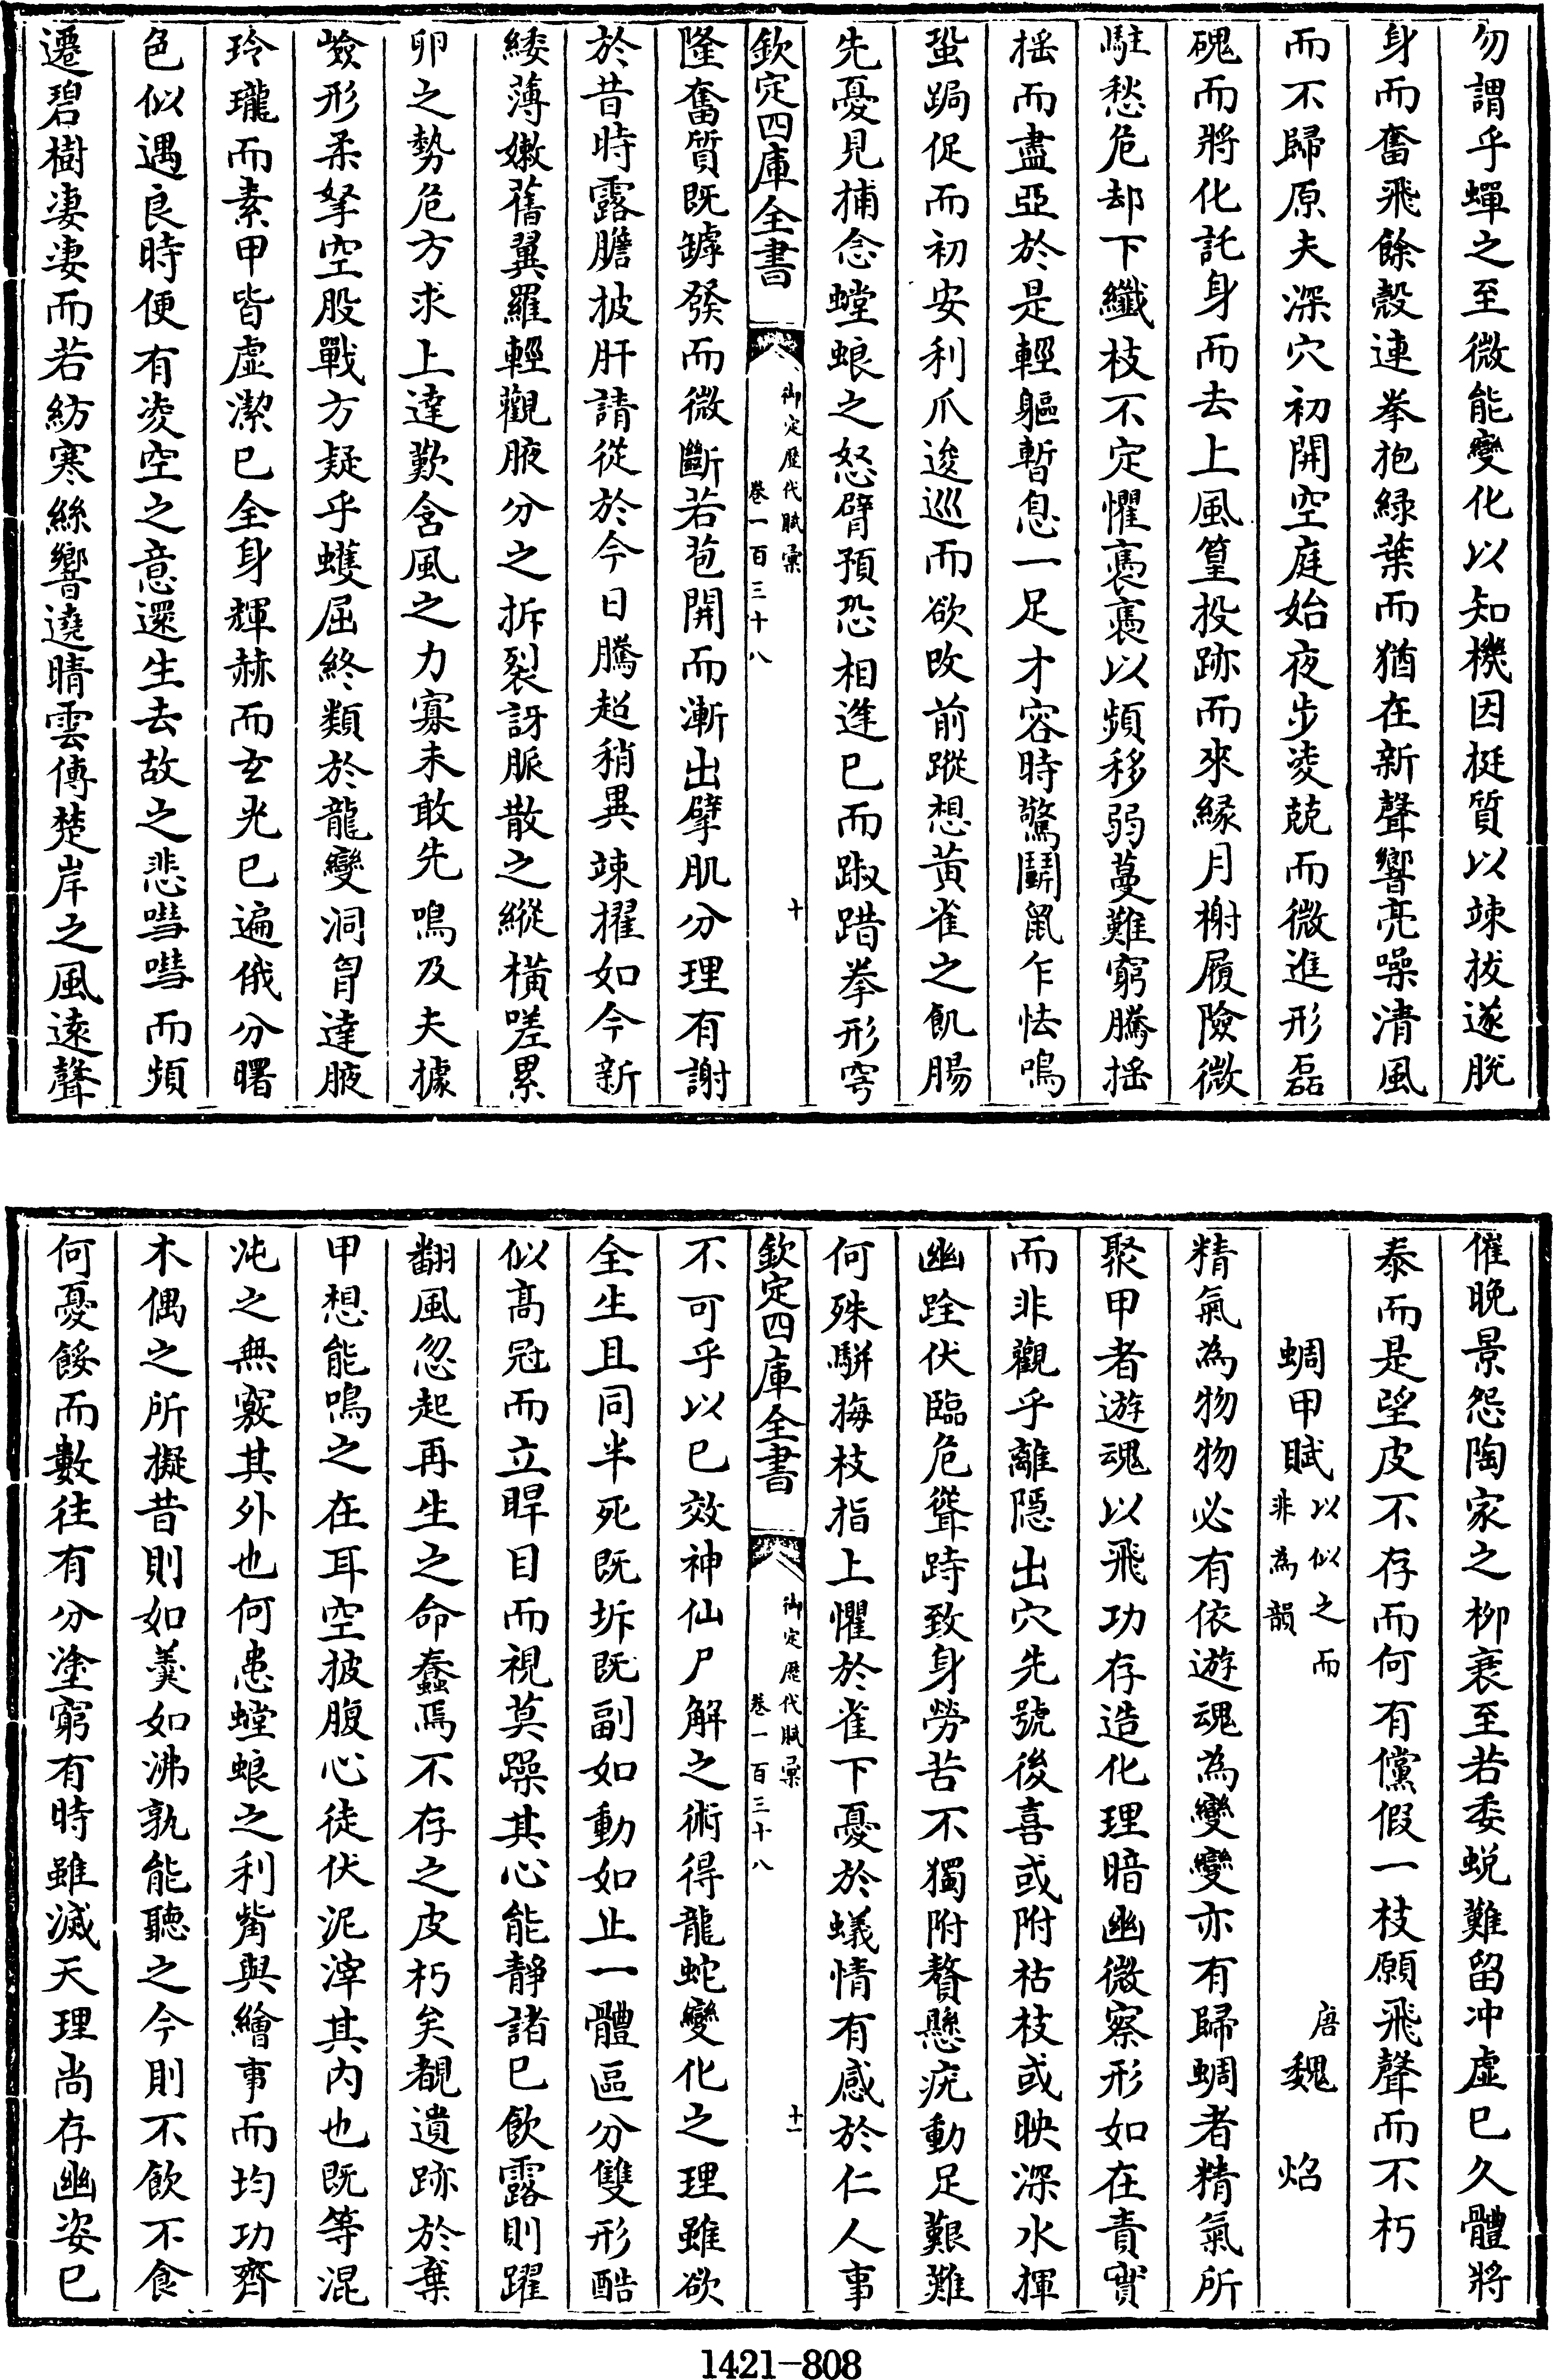 勿謂乎蟬之至微能變化以知機因挺質以竦拔遂脱
身而奮飛餘殻連拳抱緑葉而猶在新聲響亮噪清風
而不歸原夫深穴初開空庭始夜步凌兢而微進形磊
磈而將化託身而去上風篁投跡而來緣月榭履險微
駐愁危却下纖枝不定懼褭褭以頻移弱蔓難窮騰揺
揺而盡亞於是輕軀暫息一足才容時驚鬭鼠乍怯鳴
蛩跼促而初安利爪逡巡而欲改前蹤想黃雀之飢腸
先憂見捕念螳蜋之怒臂預恐相逢已而踧踖拳形穹
欽定四庫全書
御定歴代賦彙
卷一百三十八
十
隆奮質既罅發而微斷若苞開而漸出擘肌分理有謝
於昔時露膽披肝請從於今日騰超稍異竦擢如今新
緌薄嫩舊翼羅輕觀腋分之拆裂訝脈散之縱橫嗟累
卵之勢危方求上達歎含風之力寡未敢先鳴及夫據
嶮形柔拏空股戰方疑乎蠖屈終類於龍變洞胷達腋
玲瓏而素甲皆虛潔已全身輝赫而玄光已遍俄分曙
色似遇良時便有凌空之意還生去故之悲嘒嘒而頻
遷碧樹淒淒而若紡寒絲響遶晴雲傳楚岸之風遠聲
催晚景怨陶家之柳衰至若委蜕難留冲虛已久體將
泰而是望皮不存而何有儻假一枝願飛聲而不朽
蜩甲賦
以似之而
非為韻
唐
魏焰
精氣為物物必有依遊魂為變變亦有歸蜩者精氣所
聚甲者遊魂以飛功存造化理暗幽微察形如在責實
而非觀乎離隠出穴先號後喜或附枯枝或映深水揮
幽跧伏臨危聳跱致身勞苦不獨附贅懸疣動足艱難
何殊駢拇枝指上懼於雀下憂於蟻情有感於仁人事
欽定四庫全書
御定歴代賦彙
卷一百三十八
十一
不可乎以已效神仙尸解之術得龍蛇變化之理雖欲
全生且同半死既坼既副如動如止一體區分雙形酷
似高冠而立睅目而視莫躁其心能靜諸已飲露則躍
翻風忽起再生之命蠢焉不存之皮朽矣覩遺跡於棄
甲想能鳴之在耳空披腹心徒伏泥滓其内也既等混
沌之無竅其外也何患螳蜋之利觜與繪事而均功齊
木偶之所擬昔則如羹如沸孰能聽之今則不飲不食
何憂餒而數往有分塗窮有時雖滅天理尚存幽姿已
1421-808